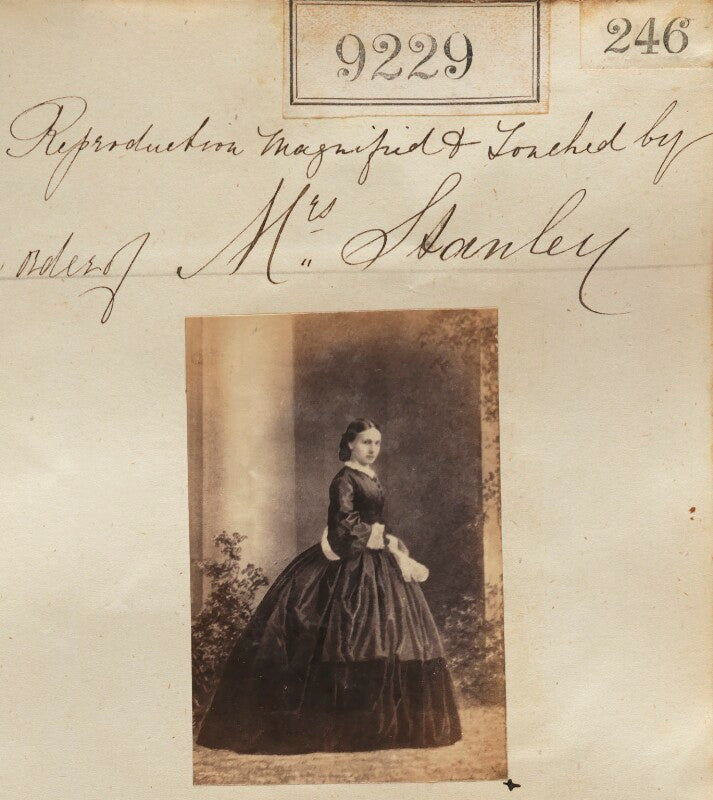 9229
246
Reproduction Magnified & Touched by
order of Mrs Stanley